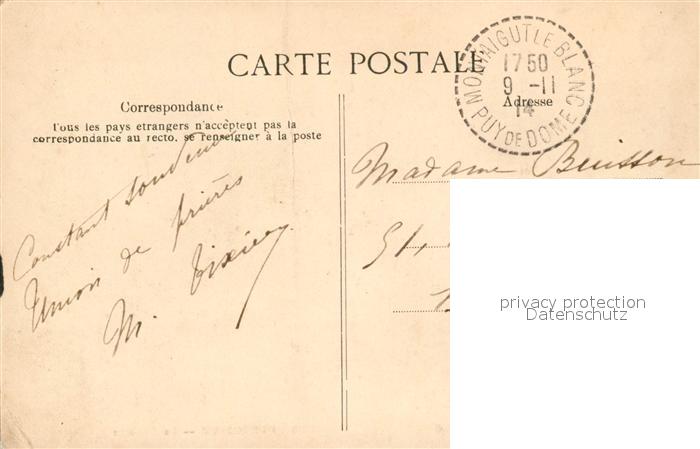 CARTE POSTALE
MONTAIGUT LE BLANC
1750
9 -11
14
PUY DE DOME
Correspondance
Tous les pays etrangers n'acceptent pas la
correspondance au recto, se renseigner à la poste
Adresse
Constant souvenir
Union de prières
M. Tixier
Madame Buisson
privacy protection
Datenschutz